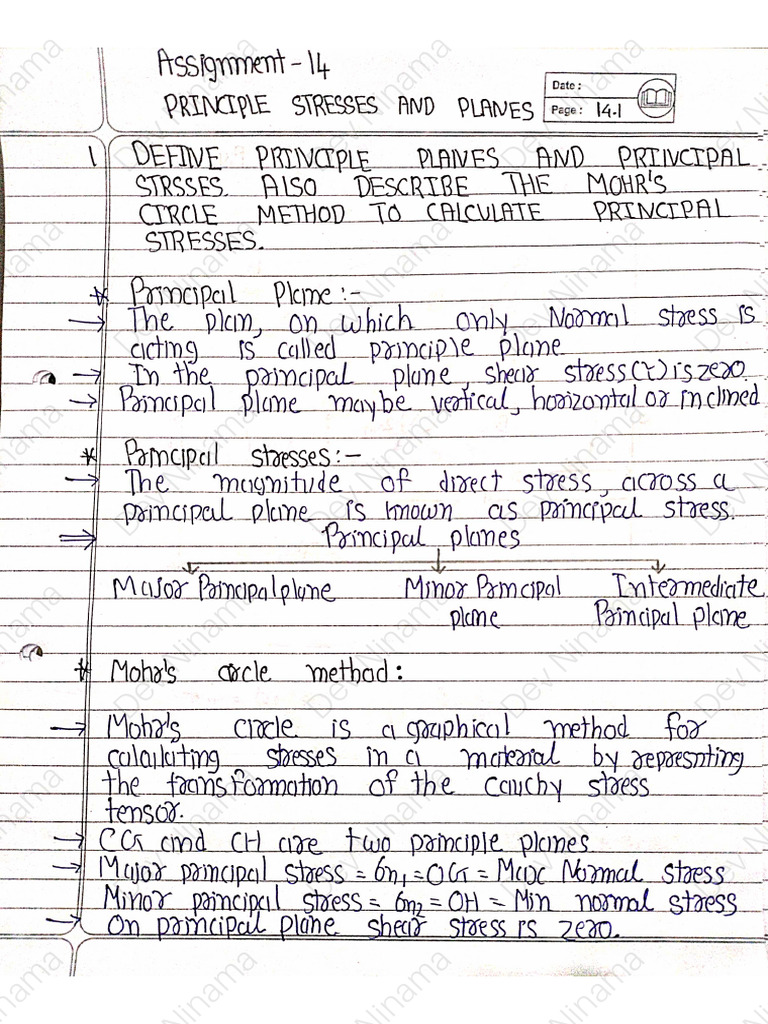 Assignment-14
PRINCIPLE STRESSES AND PLANES
Date :
Page : 14.1
1 DEFINE PRINCIPLE PLANES AND PRINCIPAL
STRSSES. ALSO DESCRIBE THE MOHR'S
CIRCLE METHOD TO CALCULATE PRINCIPAL
STRESSES.
* Principal Plane :-
→ The plan, on which only Normal stress is
acting is called principle plane
→ In the principal plane, shear stress (τ) is zero.
→ Principal plane maybe vertical, horizontal or inclined
* Principal stresses :-
→ The magnitude of direct stress, across a
principal plane is known as principal stress.
⇒ Principal planes
Major Principal plane Minor Principal Intermediate
plane Principal plane
* Mohr's circle method :
→ Mohr's circle is a graphical method for
calculating stresses in a material by represnting
the transformation of the Cauchy stress
tensor.
→ CG and CH are two principle planes
→ Major principal stress = 6n1 = OG = Max Normal stress
Minor principal stress = 6n2 = OH = Min normal stress
→ On principal plane shear stress is zero.
Dev Ninama